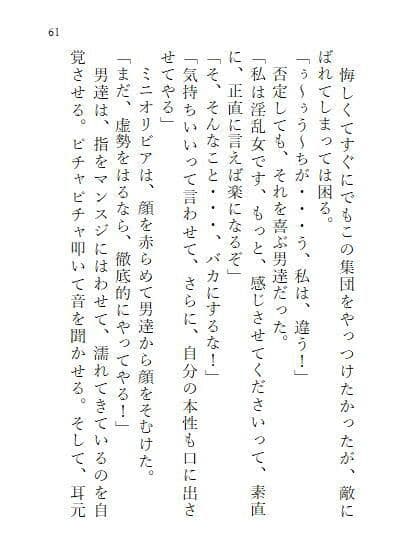 61
悔しくてすぐにでもこの集団をやっつけたかったが、敵に
ばれてしまっては困る。
「ぅ～ぅう～ちが・・・う、私は、違う！」
否定しても、それを喜ぶ男達だった。
「私は淫乱女です、もっと、感じさせてくださいって、素直
に、正直に言えば楽になるぞ」
「そ、そんなこと・・・、バカにするな！」
「気持ちいいって言わせて、さらに、自分の本性も口に出さ
せてやる」
ミニオリビアは、顔を赤らめて男達から顔をそむけた。
「まだ、虚勢をはるなら、徹底的にやってやる！」
男達は、指をマンスジにはわせて、濡れてきているのを自
覚させる。ピチャピチャ叩いて音を聞かせる。そして、耳元